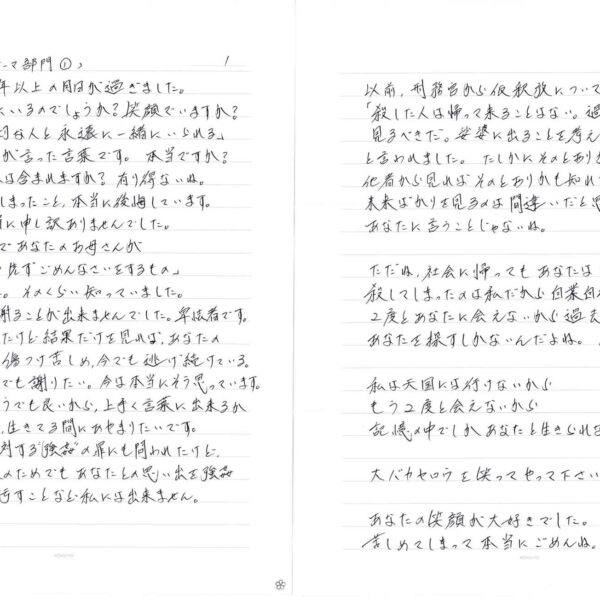 ーマ部門①〉
1
年以上の月日が過ぎました。
にいるのでしょうか？笑顔でいますか？
切な人と永遠に一緒にいられる」
が言った言葉です。本当ですか？
は含まれますか？有り得ないね。
しまったこと、本当に後悔しています。
に申し訳ありませんでした。
であなたのお母さんが
先ずごめんなさいをするもの」
。そのくらい知っていました。
謝ることが出来ませんでした。卑怯者です。
たけど結果だけを見れば、あなたの
傷つけ苦しめ、今でも逃げ続けている。
でも謝りたい。今は本当にそう思っています。
うでも良いから、上手く言葉に出来るか
、生きてる間にあやまりたいです。
対する"強姦"の罪にも問われたけど、
のためでもあなたとの思い出を強姦
すことなど私には出来ません。
以前、刑務官から仮釈放について
「殺した人は帰って来ることはない。過
見るべきだ。娑婆に出ることを考え
と言われました。たしかにそのとおりか
他者から見ればそのとおりかも知れ
未来ばかりを見るのは間違いだと思
あなたに言うことじゃないね。
ただね、社会に帰ってもあなたは
殺してしまったのは私だから自業自
2度とあなたに会えないから過去
あなたを探すしかないんだよね。
私は天国には行けないから
もう2度と会えないから
記憶の中でしかあなたと生きられな
大バカヤロウを笑ってやって下さい
あなたの笑顔が大好きでした。
苦しめてしまって本当にごめんね。